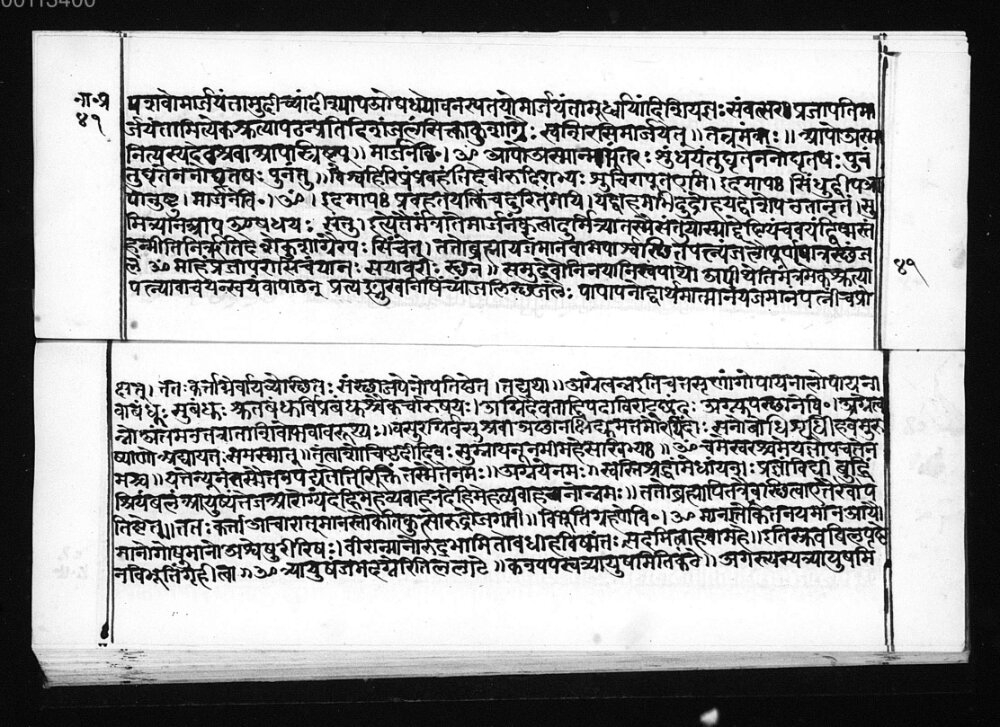 ना॰प्र
४१
पशवो मार्जयंतामुदीच्यां दीश्याप ओषधयो वनस्पतयो मार्जयंतामूर्ध्वायां दिशि यज्ञः संवत्सरः प्रजापतिर्मा
र्जयंतामित्येकश्रुत्या पठन्प्रतिदिशं जलं सिक्त्वा कुशाग्रैः स्वशिरसि मार्जयेत् ॥ तन्मंत्राः ॥ आपो अस्मा
मार्जने वि॰। ॐ आपो अस्मान्मातरः शुंधयंतु घृतेन नो घृतप्वः पुनं
तु घृतेन नो घृतप्वः पुनंतु ॥ विश्वं हि रिप्रं प्रवहंति देवीरुदिदाभ्यः शुचिरापूत एमि। इदमापः सिंधुद्वीप आ
पोनुष्टुप्। मार्जने वि॰। ॐ। इदमापः प्रवहत यत्किंच दुरितं मयि। यद्वाहमभिदुद्रोह यद्वा शेप उतानृतं। सु
मित्र्या न आप ओषधयः संतु। इत्येतैर्मंत्रांते मार्जनं कृत्वा दुर्मित्र्यास्तस्मै संतु योस्मान्द्वेष्टि यं च वयं द्विष्मस्तं
हन्मीति कुशाग्रैरपः सिंचेत्। ततो ब्रह्मा यजमानवामपार्श्वस्थित पत्न्यंजलौ पूर्णपात्रस्थं ज
लं ॐ माहं प्रजां परासिचं या नः सयावरीः स्थन ॥ समुद्रे वो निनयानि स्वं पाथो अपीथेति मंत्रमेकश्रुत्या
पत्न्या वाचयन्स्वयं वा पठन् प्रत्यङ्मुखं निषिच्यांजलिस्थजलैः पापापनोदार्थमात्मानं यजमानं पत्नीं च प्रो
४१
क्षेत्। ततः कर्ताग्नेर्वायव्ये स्थितः संस्थाजपेनोपतिष्ठेत। तद्यथा ॥ अग्ने त्वन्न इति चतसृणां गोपायना लौपायना
वा बंधुः सुबंधुः श्रुतबंधुर्विप्रबंधुश्चैकैकर्चा ऋषयः। अग्निर्देवता द्विपदाविराट्छंदः अग्न्युपस्थाने वि॰। ॐ अग्ने त्व
न्नो अंतम उत त्राता शिवो भवा वरूथ्यः ॥ वसुरग्निर्वसुश्रवा अच्छा नक्षि द्युमत्तमं रयिं दाः। स नो बोधि श्रुधी हवमुरु
ष्याणो अघायतः समस्मात् ॥ तंत्वा शोचिष्ठ दीदिवः सुम्नाय नूनमीमहे सखिभ्यः ॥ ॐ च मे स्वरश्च मे यज्ञोप च ते न
मश्च। यत्ते न्यूनं तस्मै त उप यत्तेतिरिक्तं तस्मै ते नमः ॥ अग्नये नमः ॥ स्वस्ति श्रद्धां मेधां यशः प्रज्ञां विद्यां बुद्धिं
श्रियं बलं आयुष्यं तेज आरोग्यं देहि मे हव्यवाहन देहि मे हव्यवाहनोन्नमः ॥ ततो ब्रह्मापि तत्रैव स्थित्वा एतेनैवोप
तिष्ठेत ॥ ततः कर्ता आचारात् मानस्तोके कुत्सो रुद्रो जगती। विभूतिग्रहणे वि॰। ॐ मानस्तोके तनये मा न आयौ
मा नो गोषु मा नो अश्वेषु रीरिषः। वीरान्मा नो रुद्र भामितो वधीर्हविष्मंतः सदमित्त्वा हवामहे ॥ इति स्रुवबिलपृष्ठे
न विभूतिं गृहीत्वा ॥ ॐ त्र्यायुषं जमदग्नेरिति ललाटे ॥ कश्यपस्य त्र्यायुषमिति कंठे ॥ अगस्त्यस्य त्र्यायुषमि